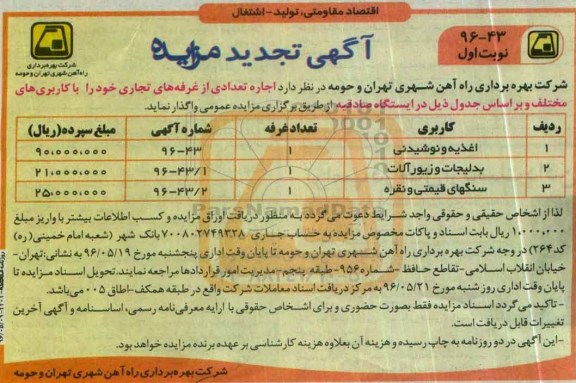 اقتصاد مقاومتی، تولید - اشتغال
۹۶-۴۳
نوبت اول
آگهی تجدید مزایده
شرکت بهره برداری
راه آهن شهری تهران و حومه
شرکت بهره برداری راه آهن شهری تهران و حومه در نظر دارد اجاره تعدادی از غرفه‌های تجاری خود را با کاربری‌های
مختلف و بر اساس جدول ذیل در ایستگاه صادقیه از طریق برگزاری مزایده عمومی واگذار نماید.
ردیف کاربری تعداد غرفه شماره آگهی مبلغ سپرده (ریال)
۱ اغذیه و نوشیدنی ۱ ۹۶-۴۳ ۹۰،۰۰۰،۰۰۰
۲ بدلیجات و زیورآلات ۱ ۹۶-۴۳/۱ ۲۱،۰۰۰،۰۰۰
۳ سنگهای قیمتی و نقره ۱ ۹۶-۴۳/۲ ۲۵،۰۰۰،۰۰۰
ParsNamadData
لذا از اشخاص حقیقی و حقوقی واجد شرایط دعوت می‌گردد به منظور دریافت اوراق مزایده و کسب اطلاعات بیشتر با واریز مبلغ
۱،۰۰۰،۰۰۰ ریال بابت اسناد و پاکات مخصوص مزایده به حساب جاری ۷۰۰۸۰۲۷۴۹۳۲۸ بانک شهر (شعبه امام خمینی (ره)
کد ۲۶۴) در وجه شرکت بهره برداری راه آهن شهری تهران و حومه تا پایان وقت اداری پنجشنبه مورخ ۹۶/۰۵/۱۹ به نشانی: تهران-
خیابان انقلاب اسلامی-تقاطع حافظ -شماره ۹۵۶-طبقه پنجم-مدیریت امور قراردادها مراجعه نمایند. تحویل اسناد مزایده تا
پایان وقت اداری روز شنبه مورخ ۹۶/۰۵/۲۱ به مرکز دریافت اسناد معاملات شرکت واقع در طبقه همکف-اطاق ۰۰۵ می‌باشد.
- تاکید می‌گردد اسناد مزایده فقط بصورت حضوری و برای اشخاص حقوقی با ارایه معرفی‌نامه رسمی، اساسنامه و آگهی آخرین
تغییرات قابل دریافت است.
-این آگهی در دو روزنامه به چاپ رسیده و هزینه آن بعلاوه هزینه کارشناسی بر عهده برنده مزایده خواهد بود.
شرکت بهره برداری راه آهن شهری تهران و حومه